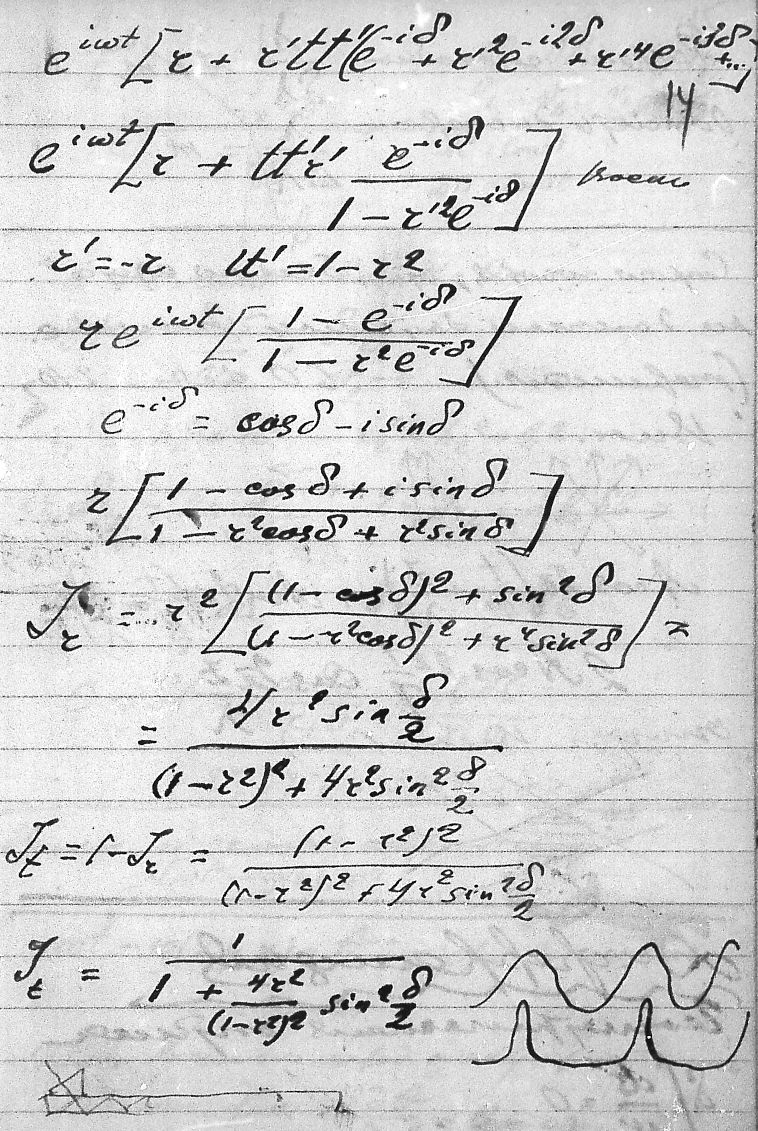 e^{iωt}[r + r'tt'(e^{-iδ} + r'^2e^{-i2δ} + r'^4e^{-i3δ} + ...]
14
e^{iωt}[r + tt'r' \frac{e^{-iδ}}{1 - r'^2e^{-iδ}}]
r' = -r tt' = 1 - r^2
re^{iωt}[\frac{1 - e^{-iδ}}{1 - r^2e^{-iδ}}]
e^{-iδ} = cosδ - i sinδ
r[\frac{1 - cosδ + i sinδ}{1 - r^2cosδ + r^2sinδ}]
J_r = r^2[\frac{(1 - cosδ)^2 + sin^2δ}{(1 - r^2cosδ)^2 + r^4sin^2δ}] =
= \frac{4r^2sin\frac{δ}{2}}{(1 - r^2)^2 + 4r^2sin^2\frac{δ}{2}}
J_t = 1 - J_r = \frac{(1 - r^2)^2}{(1 - r^2)^2 + 4r^2sin^2\frac{δ}{2}}
J_t = \frac{1}{1 + \frac{4r^2}{(1 - r^2)^2} sin^2\frac{δ}{2}}